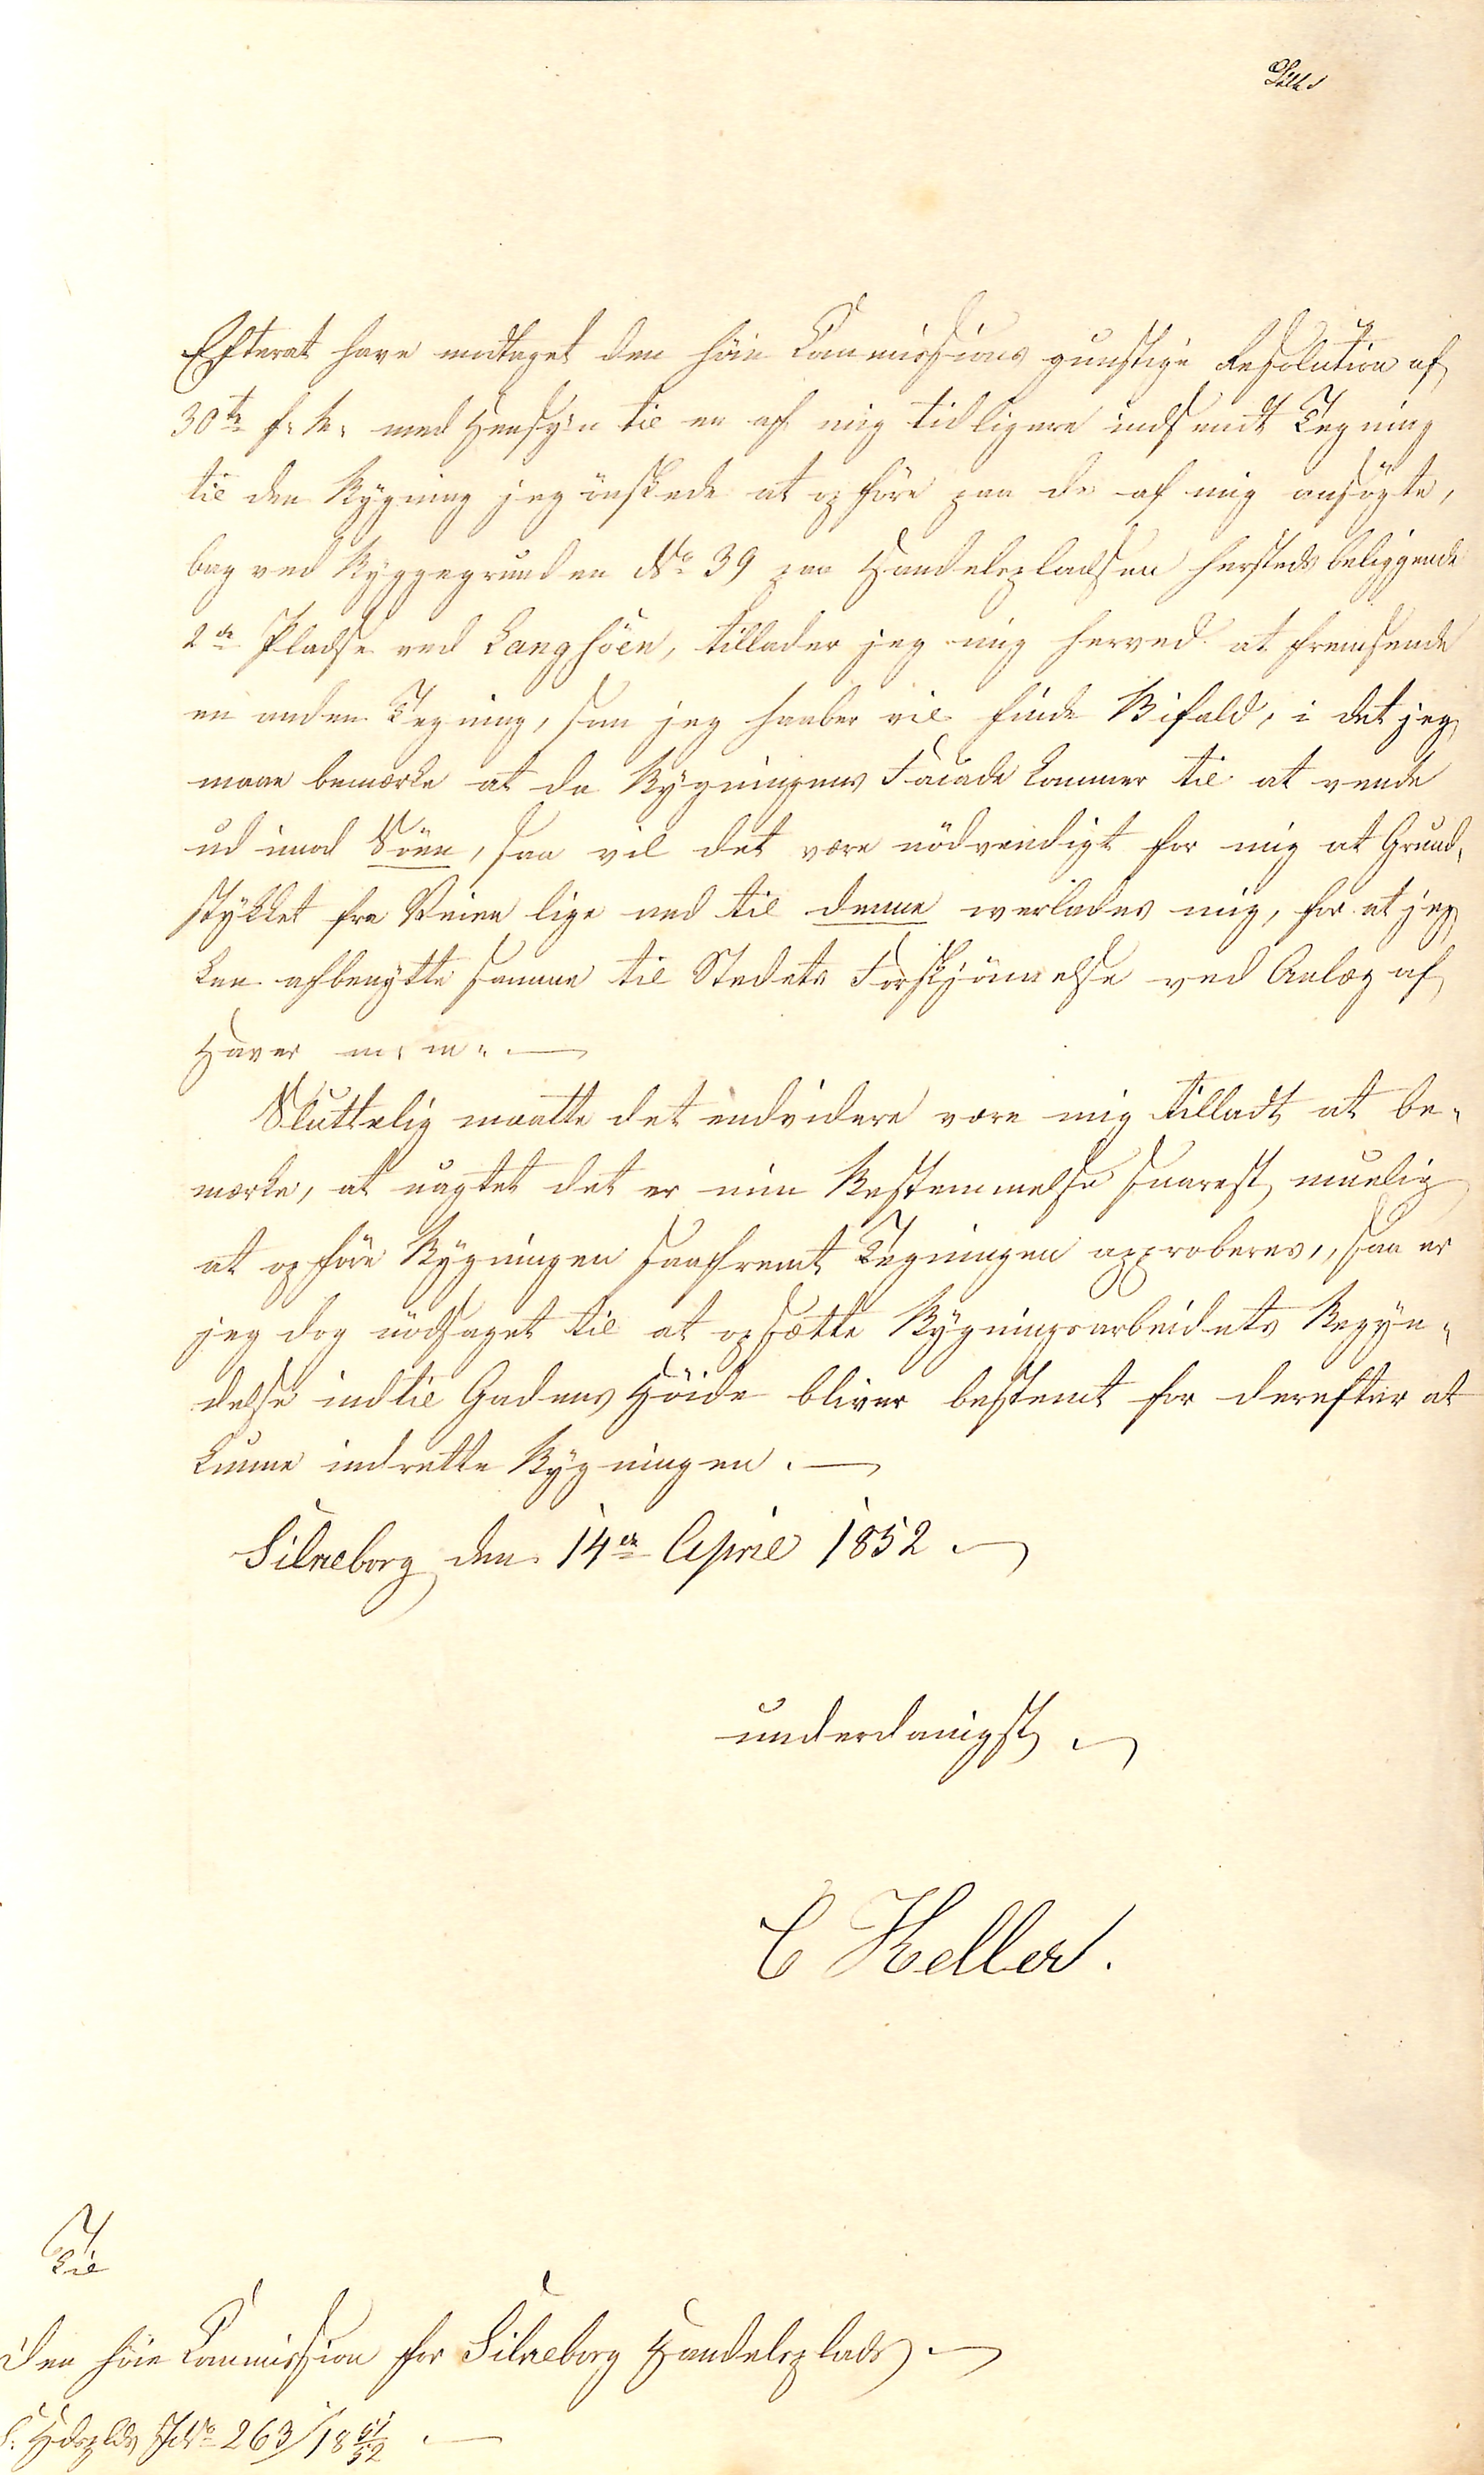 Efterat have modtaget den höie Commissions gunstige Resolution af
30te f: M: med Hensyn til en af mig tidligere indsendt Tegning
til den Bygning jeg önskede at opföre paa de af mig ansögte,
bag ved Byggegrunden No 39 paa Handelspladsen hersteds beliggende
2de Pladse ved Langsöen, tillader jeg mig herved at fremsende
en anden Tegning, som jeg haaber vil finde Bifald, i det jeg
maae bemærke at da Bygningens Facade kommer til at vende
ud imod Söen, saa vil det være nödvendigt for mig at Grund-
stykket fra Veien lige ned til denne overlades mig, for at jeg
kan afbenytte samme til Stedets Forskjönnelse ved Anlæg af
Haver m: m:
Sluttelig maatte det endvidere være mig tilladt at be-
mærke, at uagtet det er min Bestemmelse snarest muelig
at opföre Bygningen saafremt Tegningen approberes, saa er
jeg dog nödsaget til at opsætte Bygningsarbeidets Begyn-
delse indtil Gadens Höide bliver bestemt for derefter at
kunne indrette Bygningen.
Silkeborg den 14de April 1852
underdanigst
C Keller.
Til
den höie Commission for Silkeborg Handelsplads
S. Hdsplds J No 263/18 51/52